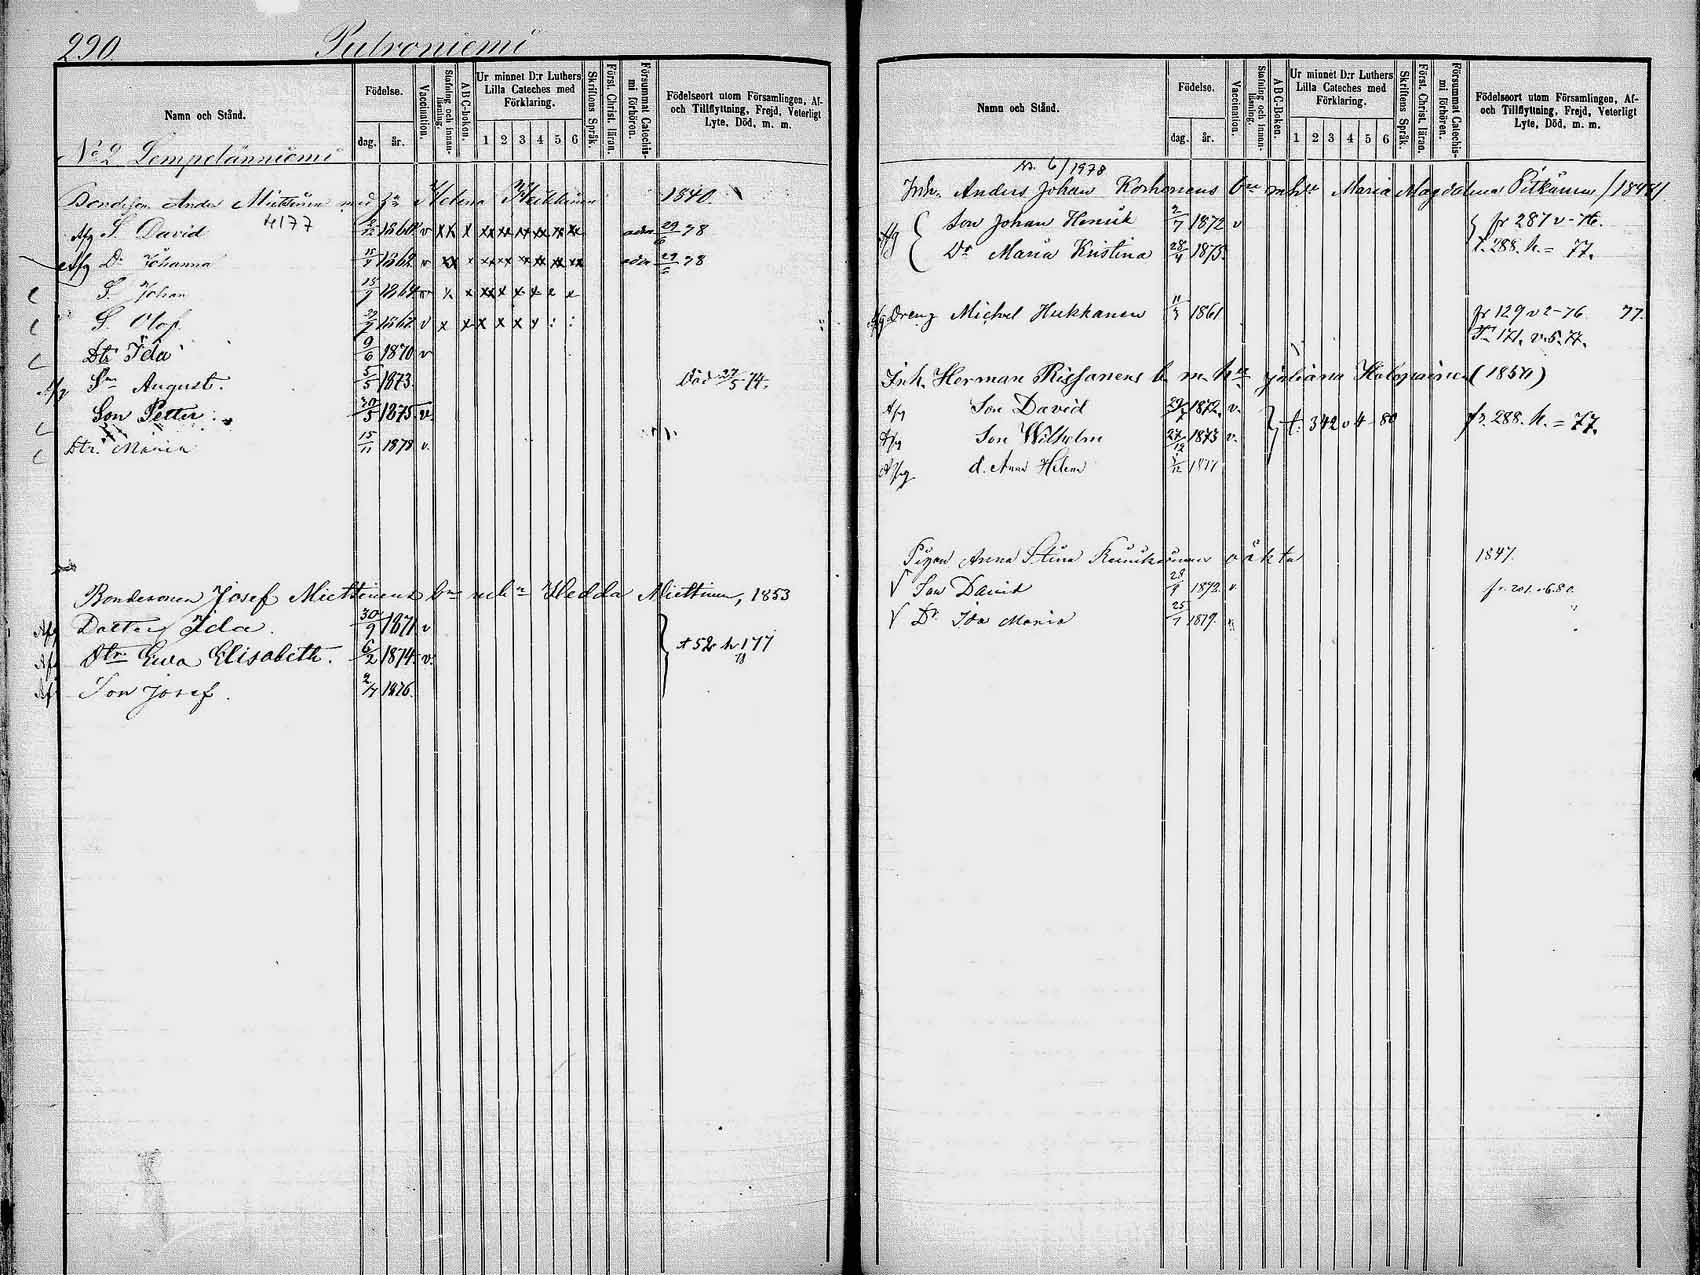 290. Putroniemi
Namn och Stånd.
Födelse.
dag. år.
Vaccination.
Stafning och innan-läsning.
A B C-boken.
Ur minnet D:r Luthers Lilla Cateches med Förklaring.
1 2 3 4 5 6
Skriftens Språk.
Först. Christ. läran.
Försummat Catechis-mi förhören.
Födelseort utom Församlingen, Af- och Tillflyttning, Frejd, Veterligt Lyte, Död, m. m.
No 2 Lempelänniemi
Anders Miettinen Helena Heikkinen 1840
4177
Afg S. David 1860 v xx x xx xx xx xx xx xx 29/6 78
Afg Dr Johanna 1862 v xx x xx xx xx xx xx 29/6 78
S. Johan 1864 v x x xx x x x
S. Olof 1867 v x x x x x
Dtr Ida 9/6 1870 v
Afg Sn August. 5/5 1873. Död 27/5 74.
Son Petter 30/5 1875. v.
Dtr. Maria 15/11 1878 v.
Bondesonen Josef Miettinens bn m hn Hedda Miettinen, 1853
Afg Dotter Ida. 30/9 1871 v
Afg Dtr Ewa Elisabeth. 6/2 1874. v.
Af Son Josef. 2/4 1876.
Namn och Stånd.
Födelse.
dag. år.
Vaccination.
Stafning och innan-läsning.
A B C-boken.
Ur minnet D:r Luthers Lilla Cateches med Förklaring.
1 2 3 4 5 6
Skriftens Språk.
Först. Christ. läran.
Försummat Catechis-mi förhören.
Födelseort utom Församlingen, Af- och Tillflyttning, Frejd, Veterligt Lyte, Död, m. m.
6/1978
Inh. Anders Johan Korhonens bn m hn Maria Magdalena Pitkänen
Afg Son Johan Henrik 2/7 1872 v fr 287 v-76.
Dr Maria Kristina 28/4 1875. t. 288. h. = 77.
Afg Dreng Michel Hukkanen 1861 fr 129 v 2-76 77.
171. v. 5. 77.
Inh. Herman Rissanens b m hn Juliana Holopainen (1854)
Afg Son David 1872. v. t. 342 v 4 80 fr. 288. h. = 77.
Afg Son Wilhelm 27/12 1873 v.
Afg d. Anna Helena 1877
Pigan Anna Stina oäkta 1847
V Son David 28/9 1872. v
V Dr Ida Maria 25/1 1879.